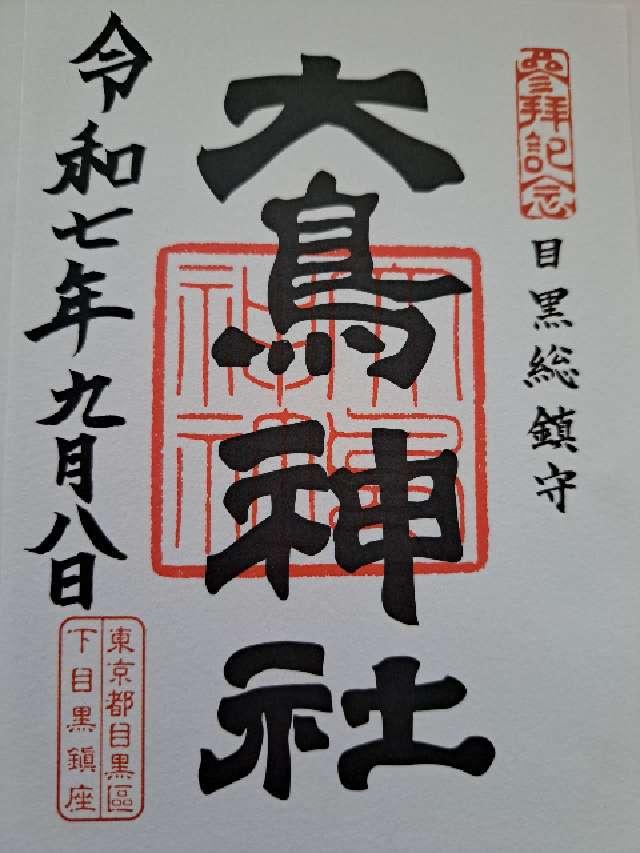 参拝記念
目黒総鎮守
大鳥神社
大鳥神社
令和七年九月八日
東京都目黒區
下目黒鎮座